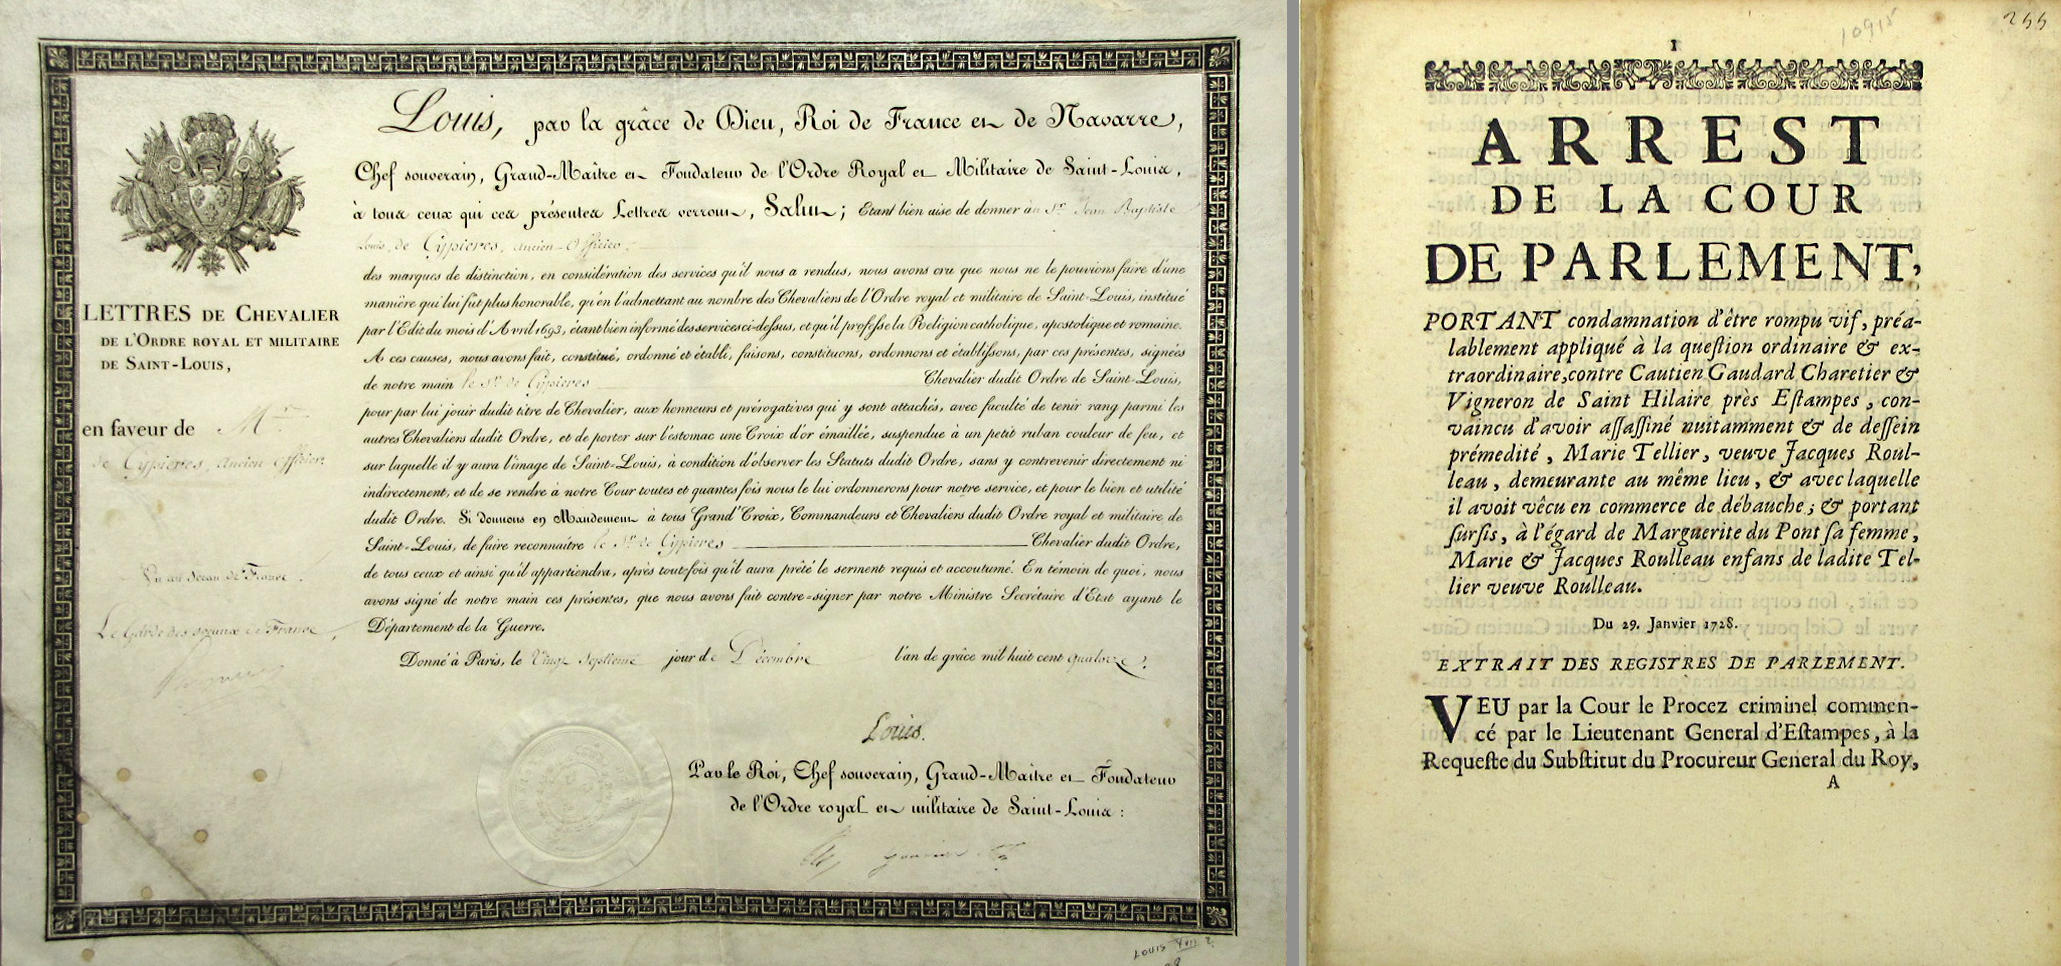 LETTRES DE CHEVALIER
DE L'ORDRE ROYAL ET MILITAIRE
DE SAINT-LOUIS,
en faveur de Mr
de Cypieres, ancien Officier.
Vu au Sceau de France.
Le Garde des sceaux de France,
Louis, par la grâce de Dieu, Roi de France et de Navarre,
Chef souverain, Grand-Maître et Fondateur de l'Ordre Royal et Militaire de Saint-Louis,
à tous ceux qui ces présentes Lettres verront, Salut; Etant bien aise de donner au Sr. Jean Baptiste
Louis de Cypieres, ancien Officier,
des marques de distinction, en considération des services qu'il nous a rendus, nous avons cru que nous ne le pouvions faire d'une
manière qui lui fût plus honorable, qu'en l'admettant au nombre des Chevaliers de l'Ordre royal et militaire de Saint-Louis, institué
par l'Edit du mois d'Avril 1693, étant bien informé des services ci-dessus, et qu'il professe la Religion catholique, apostolique et romaine.
A ces causes, nous avons fait, constitué, ordonné et établi, faisons, constituons, ordonnons et établissons, par ces présentes, signées
de notre main le Sr. de Cypieres Chevalier dudit Ordre de Saint-Louis,
pour par lui jouir dudit titre de Chevalier, aux honneurs et prérogatives qui y sont attachés, avec faculté de tenir rang parmi les
autres Chevaliers dudit Ordre, et de porter sur l'estomac une Croix d'or émaillée, suspendue à un petit ruban couleur de feu, et
sur laquelle il y aura l'image de Saint-Louis, à condition d'observer les Statuts dudit Ordre, sans y contrevenir directement ni
indirectement, et de se rendre à notre Cour toutes et quantes fois nous le lui ordonnerons pour notre service, et pour le bien et utilité
dudit Ordre. Si donnons en Mandement à tous Grand'Croix, Commandeurs et Chevaliers dudit Ordre royal et militaire de
Saint-Louis, de faire reconnaître le Sr. de Cypieres Chevalier dudit Ordre,
de tous ceux et ainsi qu'il appartiendra, après toutefois qu'il aura prêté le serment requis et accoutumé. En témoin de quoi, nous
avons signé de notre main ces présentes, que nous avons fait contre-signer par notre Ministre Secrétaire d'Etat ayant le
Département de la Guerre.
Donné à Paris, le Vingt Septieme jour de Décembre l'an de grâce mil huit cent quatorze.
Louis.
Par le Roi, Chef souverain, Grand-Maître et Fondateur
de l'Ordre royal et militaire de Saint-Louis:
LOUIS XVII ?
10915
255
I
ARREST
DE LA COUR
DE PARLEMENT,
PORTANT condamnation d'être rompu vif, préa-
lablement appliqué à la question ordinaire & ex-
traordinaire, contre Cautien Gaudard Charetier &
Vigneron de Saint Hilaire près Estampes, con-
vaincu d'avoir assassiné nuitamment & de dessein
prémedité, Marie Tellier, veuve Jacques Roul-
leau, demeurante au même lieu, & avec laquelle
il avoit vêcu en commerce de débauche; & portant
sursis, à l'égard de Marguerite du Pont sa femme,
Marie & Jacques Roulleau enfans de ladite Tel-
lier veuve Roulleau.
Du 29. Janvier 1728.
EXTRAIT DES REGISTRES DE PARLEMENT.
VEU par la Cour le Procez criminel commen-
cé par le Lieutenant General d'Estampes, à la
Requeste du Substitut du Procureur General du Roy,
A